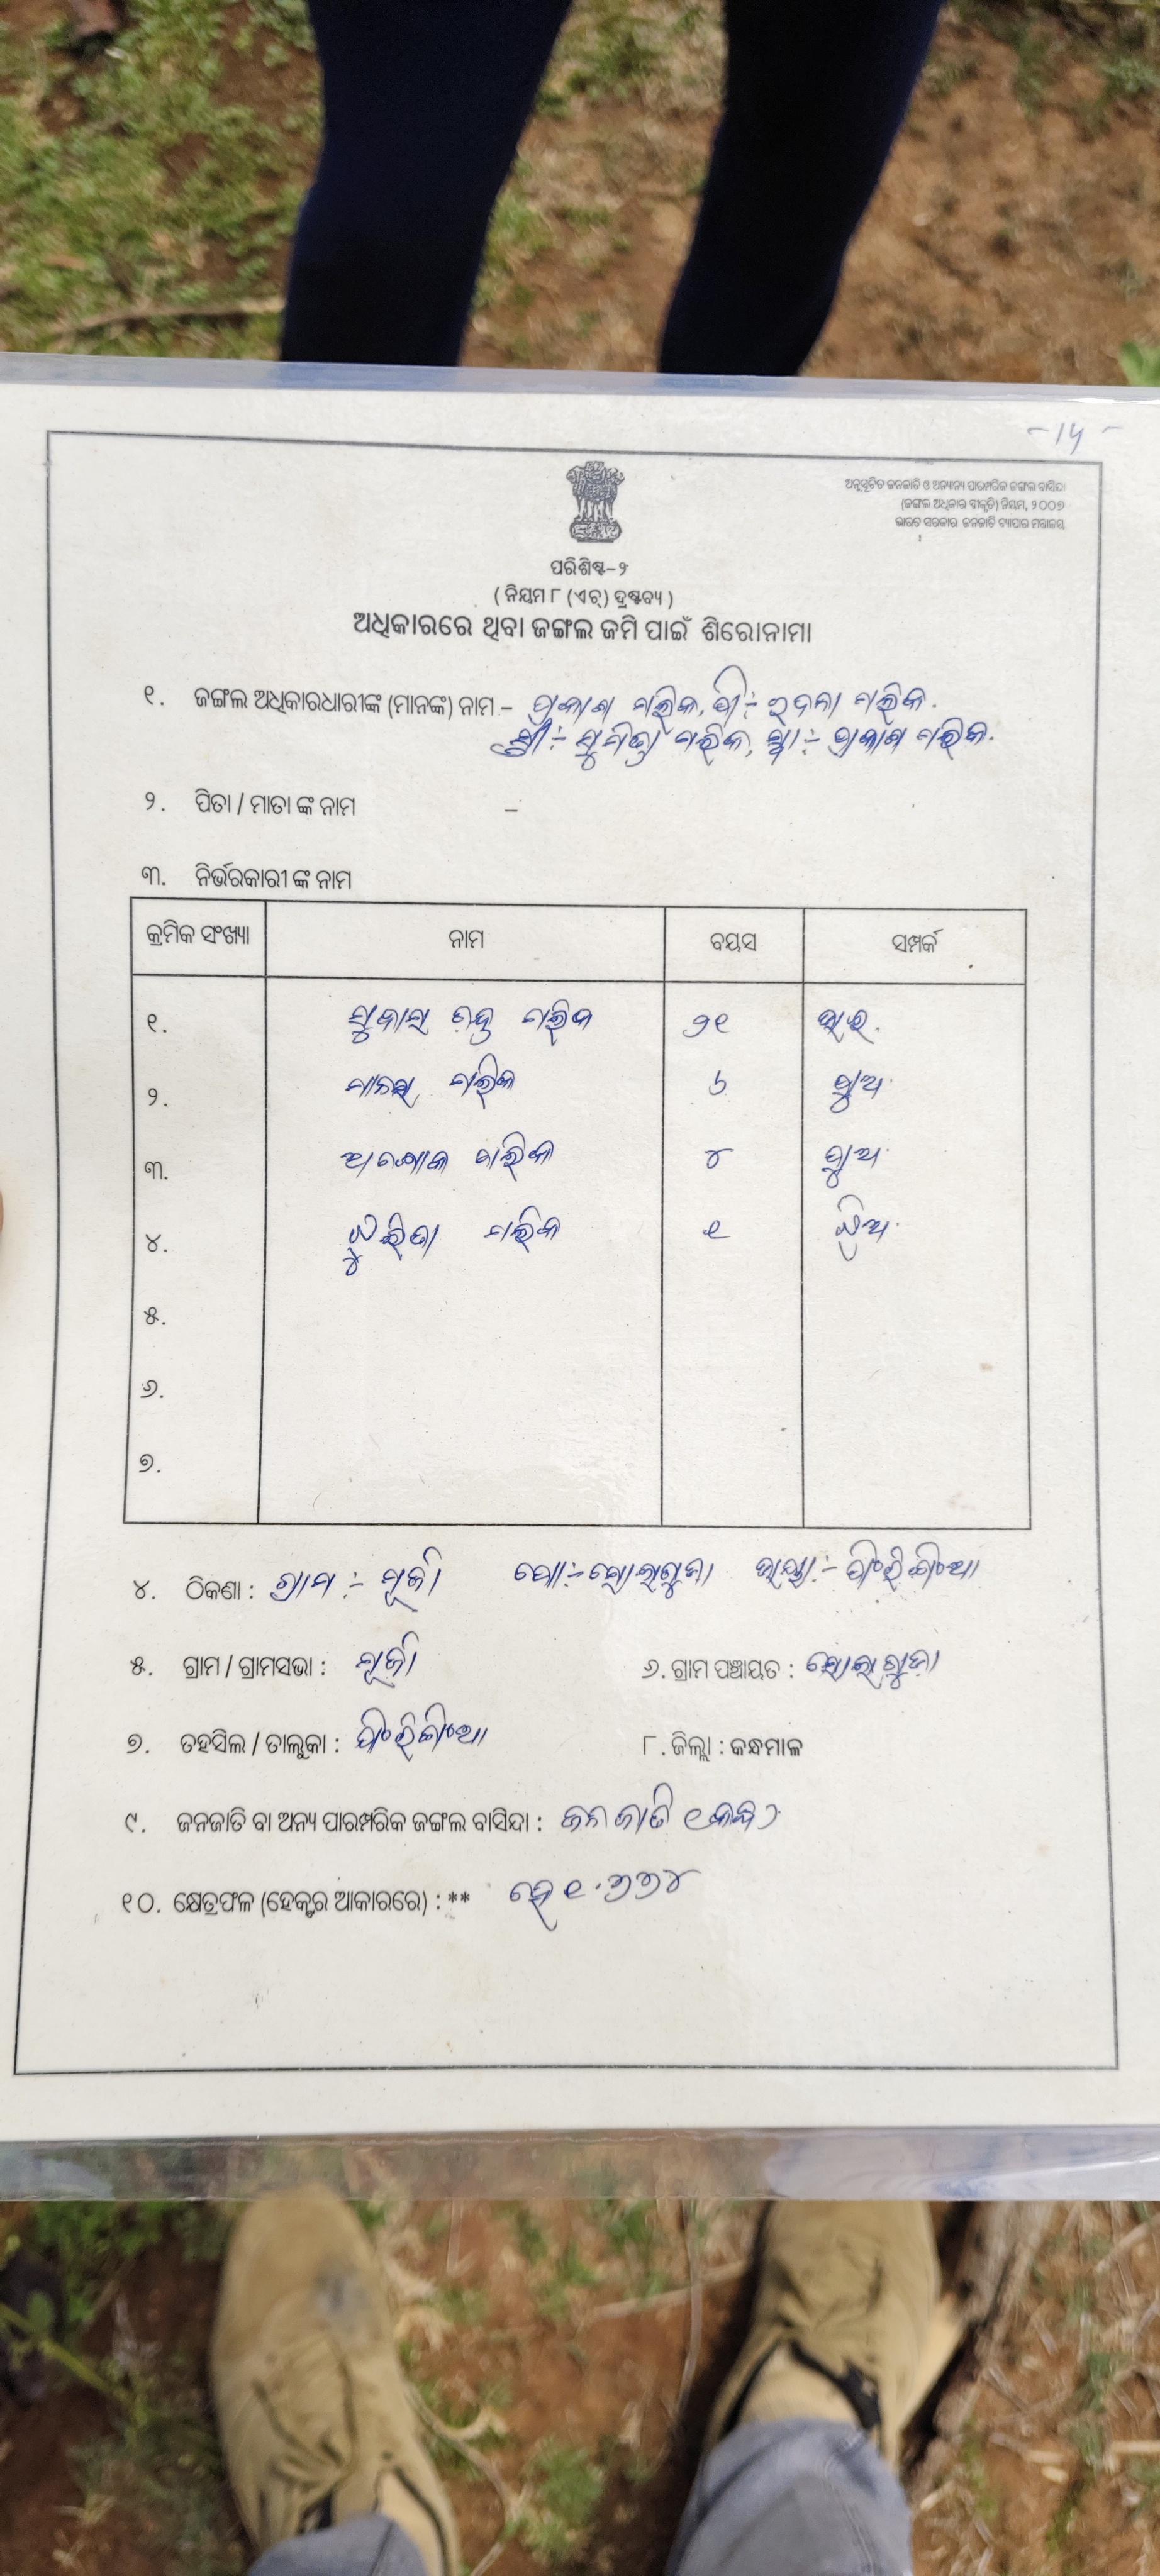 -14-
ଅନୁସୂଚିତ ଜନଜାତି ଓ ଅନ୍ୟାନ୍ୟ ପାରମ୍ପରିକ ଜଙ୍ଗଲ ବାସିନ୍ଦା
(ଜଙ୍ଗଲ ଅଧିକାର ସ୍ବୀକୃତି) ନିୟମ, ୨୦୦୭
ଭାରତ ସରକାର ଜନଜାତି ବ୍ୟାପାର ମନ୍ତ୍ରାଳୟ
ପରିଶିଷ୍ଟ-୨
( ନିୟମ ୮ (ଏଚ୍) ଦ୍ରଷ୍ଟବ୍ୟ )
ଅଧିକାରରେ ଥିବା ଜଙ୍ଗଲ ଜମି ପାଇଁ ଶିରୋନାମା
୧. ଜଙ୍ଗଲ ଅଧିକାରଧାରୀଙ୍କ (ମାନଙ୍କ) ନାମ - ପ୍ରକାଶ ମଲିକ, ପି:- ମଲିକ.
ସ୍ତ୍ରୀ:- ସୁମିତ୍ରା ମଲିକ, ସ୍ୱା:- ପ୍ରକାଶ ମଲିକ.
୨. ପିତା / ମାତା ଙ୍କ ନାମ -
୩. ନିର୍ଭରକାରୀ ଙ୍କ ନାମ
କ୍ରମିକ ସଂଖ୍ୟା ନାମ ବୟସ ସମ୍ପର୍କ
୧. ମଲିକ ୨୧ ଭାଇ.
୨. ମାନସ ମଲିକ ୬ ପୁଅ
୩. ଅଶୋକ ମଲିକ ୪ ପୁଅ
୪. ମଲିକ ୧ ଝିଅ
୫.
୬.
୭.
୪. ଠିକଣା : ଗ୍ରାମ :- ମୂର୍ଜା ପୋ:- ଥାନା:- ଫିରିଙ୍ଗିଆ
୫. ଗ୍ରାମ / ଗ୍ରାମସଭା : ମୂର୍ଜା ୬. ଗ୍ରାମ ପଞ୍ଚାୟତ :
୭. ତହସିଲ / ତାଲୁକା : ଫିରିଙ୍ଗିଆ ୮. ଜିଲ୍ଲା : କନ୍ଧମାଳ
୯. ଜନଜାତି ବା ଅନ୍ୟ ପାରମ୍ପରିକ ଜଙ୍ଗଲ ବାସିନ୍ଦା : ଜନଜାତି (କନ୍ଧ)
୧୦. କ୍ଷେତ୍ରଫଳ (ହେକ୍ଟର ଆକାରରେ) : ** ହେ ୧.୨୨୪